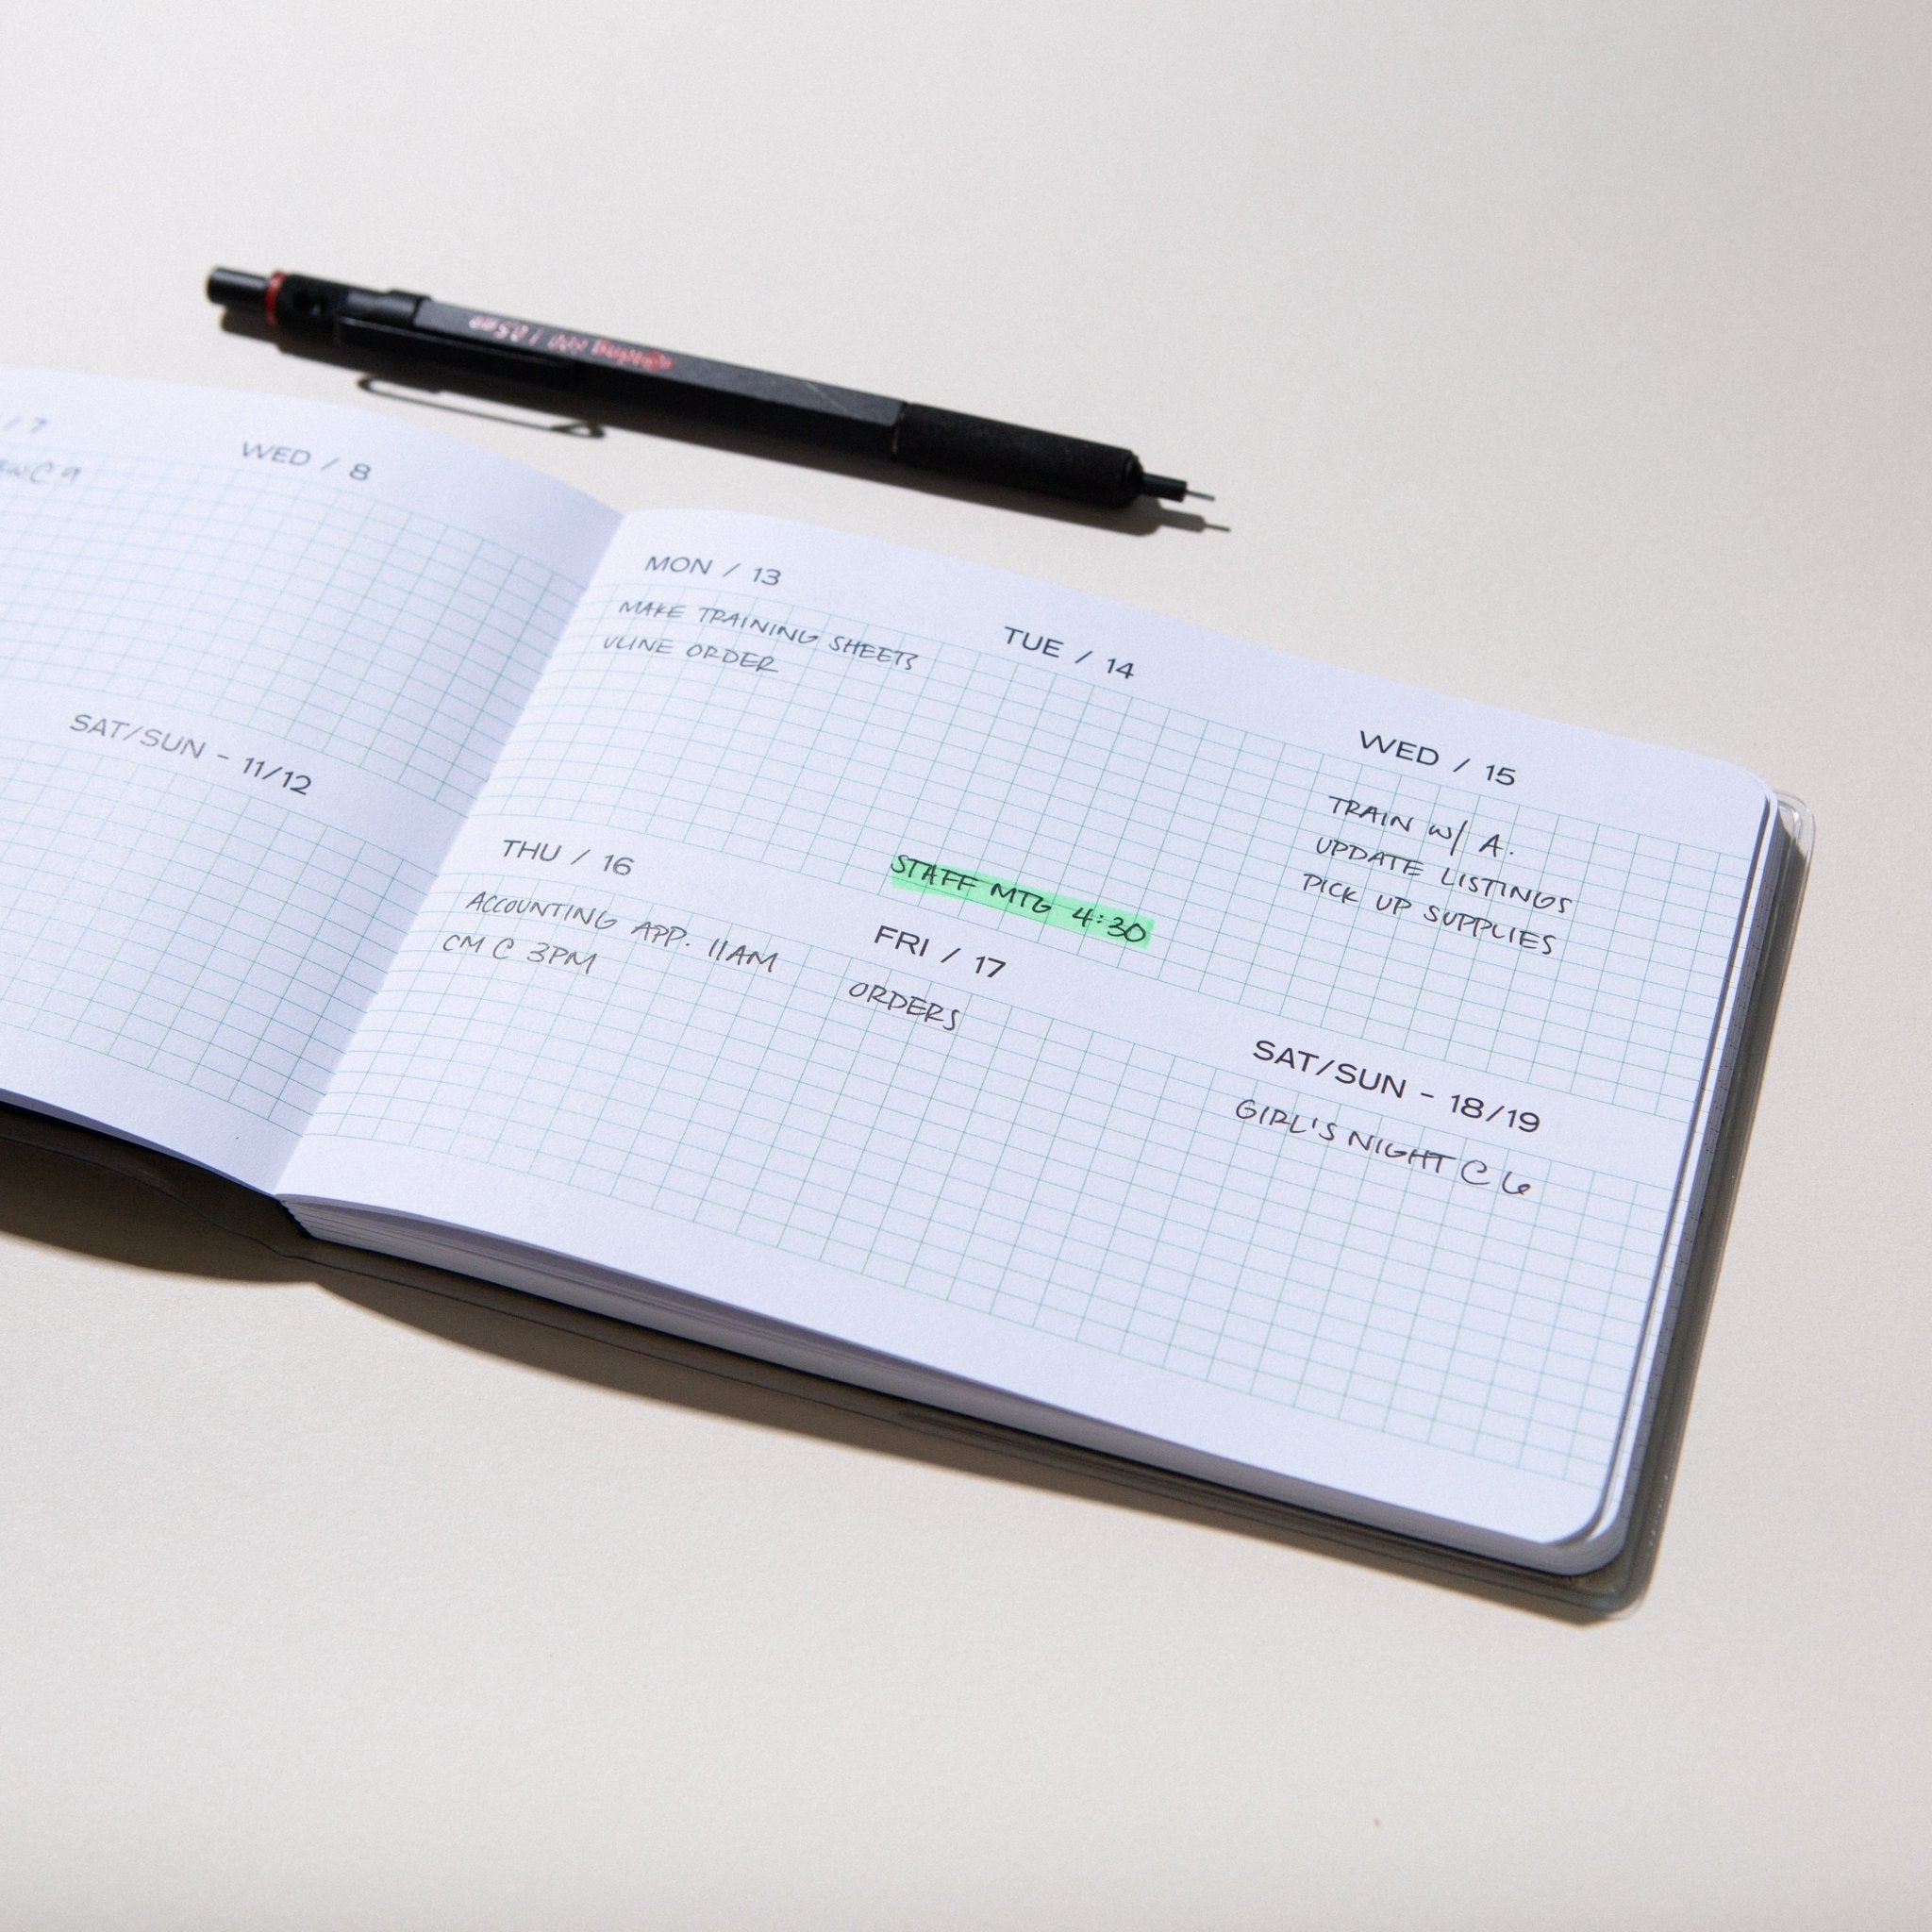 / 7
WED / 8
SAT/SUN - 11/12
MON / 13
MAKE TRAINING SHEETS
VLINE ORDER
TUE / 14
STAFF MTG 4:30
WED / 15
TRAIN W/ A.
UPDATE LISTINGS
PICK UP SUPPLIES
THU / 16
ACCOUNTING APP. 11AM
CM C 3PM
FRI / 17
ORDERS
SAT/SUN - 18/19
GIRL'S NIGHT C 6
rotring 600 / 0.5